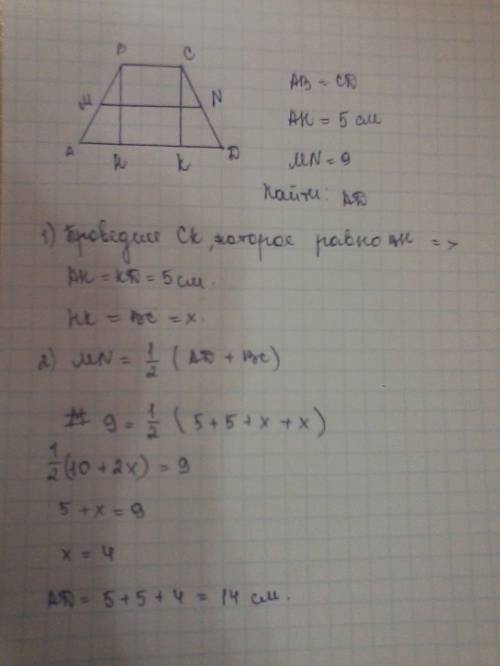 B C
M N
A H K D
AB = CD
AH = 5 см
MN = 9
Найти: AD
1) Проведем CK, которое равно AH =>
AH = KD = 5 см.
HK = BC = x.
2) MN = 1/2 (AD + BC)
9 = 1/2 (5 + 5 + x + x)
1/2(10 + 2x) = 9
5 + x = 9
x = 4
AD = 5 + 5 + 4 = 14 см.